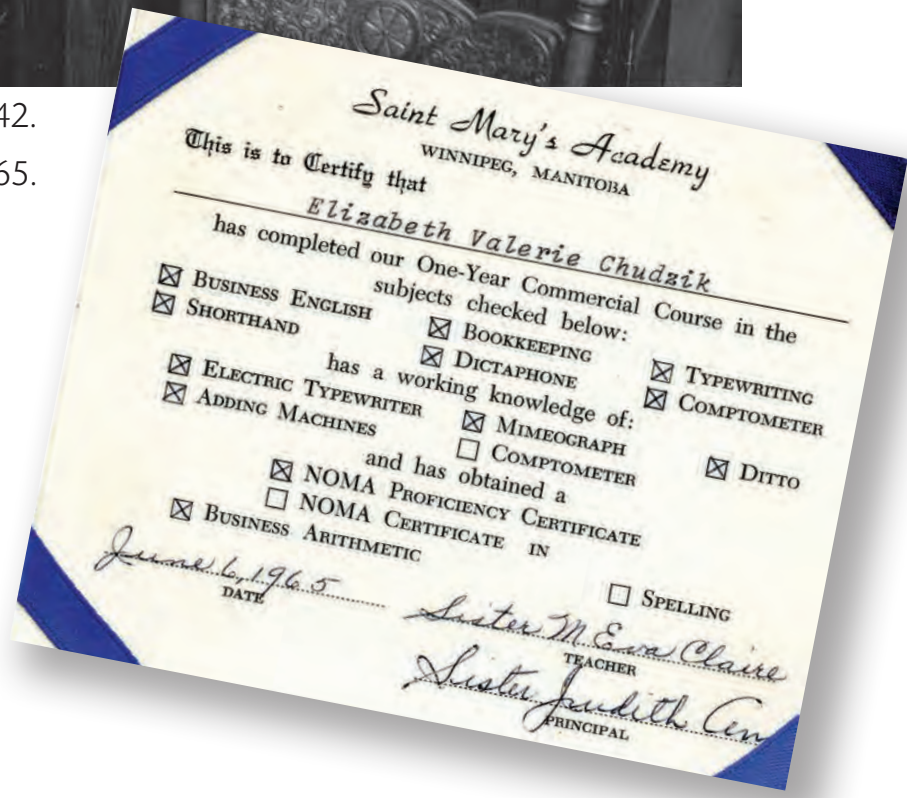 42.
65.
Saint Mary's Academy
WINNIPEG, MANITOBA
This is to Certify that
Elizabeth Valerie Chudzik
has completed our One-Year Commercial Course in the
subjects checked below:
☒ BUSINESS ENGLISH ☒ BOOKKEEPING ☒ TYPEWRITING
☒ SHORTHAND ☒ DICTAPHONE ☒ COMPTOMETER
has a working knowledge of:
☒ ELECTRIC TYPEWRITER ☒ MIMEOGRAPH ☒ DITTO
☒ ADDING MACHINES ☐ COMPTOMETER
and has obtained a
☒ NOMA PROFICIENCY CERTIFICATE
☐ NOMA CERTIFICATE IN
☒ BUSINESS ARITHMETIC ☐ SPELLING
June 6, 1965
DATE
Sister M. Eva Claire
TEACHER
Sister Judith
PRINCIPAL